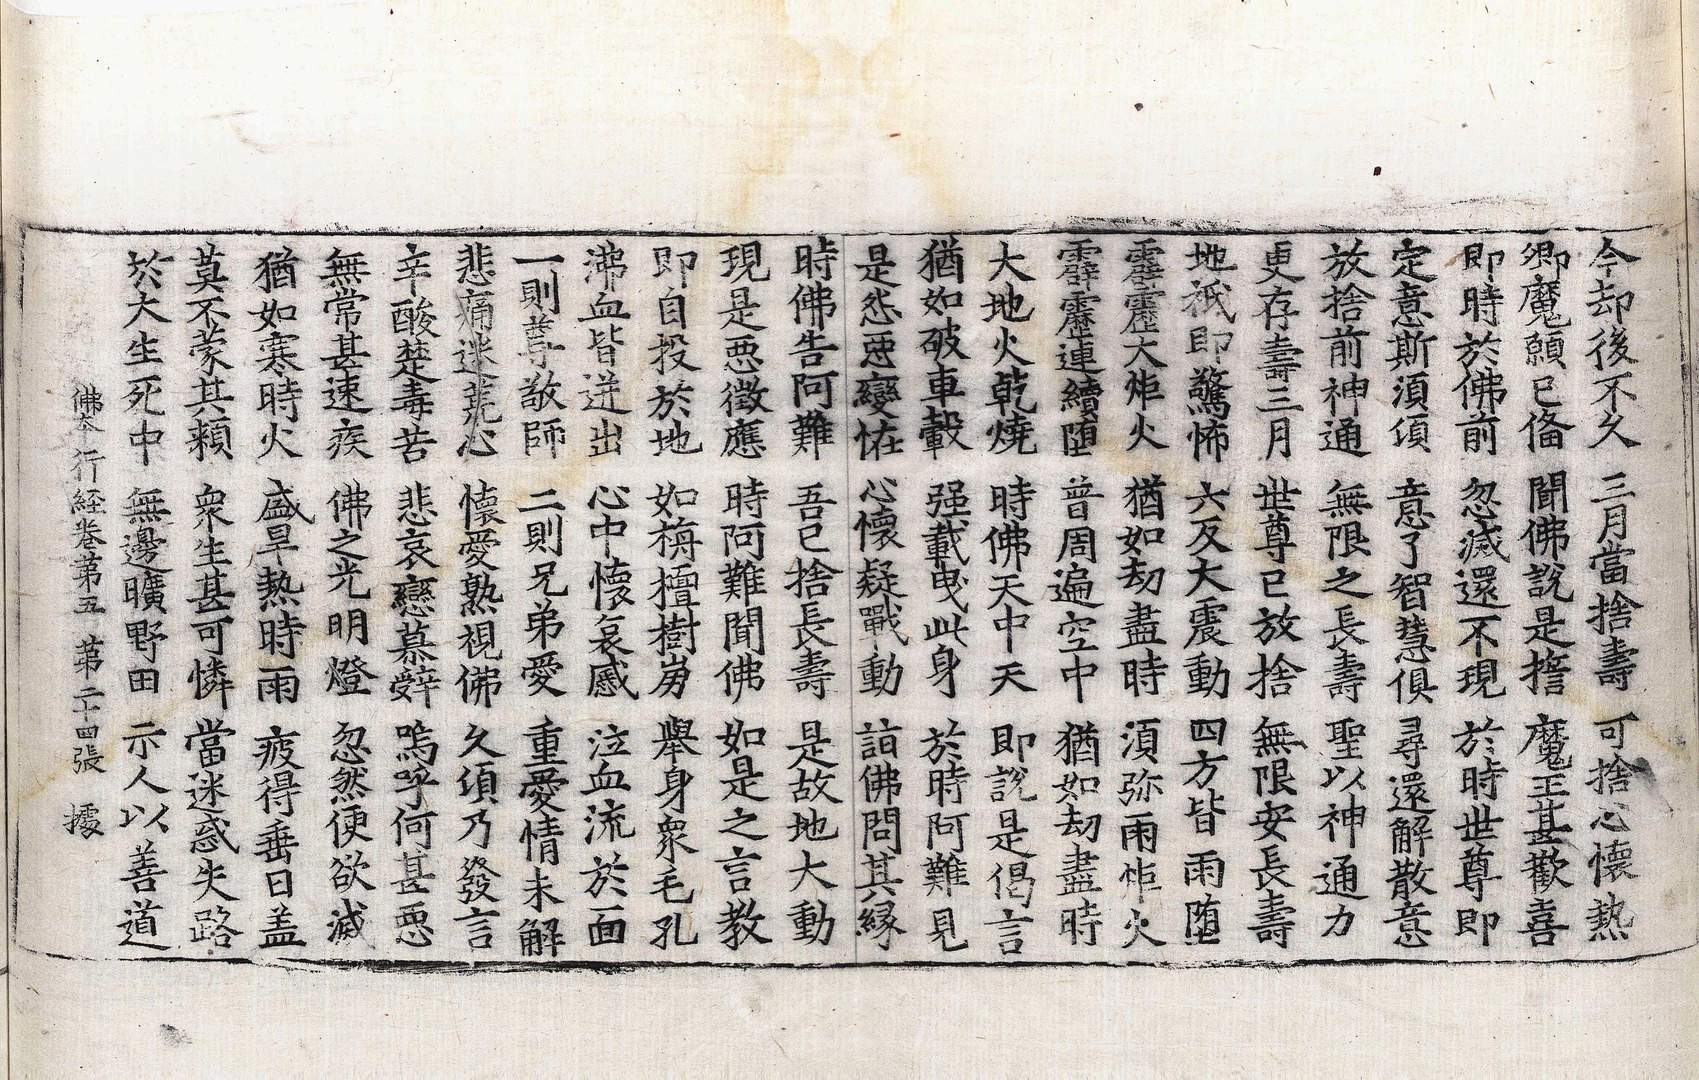 今却後不久　三月當捨壽　可捨心懷熱
卿魔願已俻　聞佛說是擔　魔王甚歡喜
即時於佛前　忽滅還不現　於時世尊即
定意斯須頃　意了智慧俱　尋還解散意
放捨前神通　無限之長壽　聖以神通力
更存壽三月　世尊已放捨　無限安長壽
地祇即驚怖　六反大震動　四方皆雨堕
霹靂大炬火　猶如劫盡時　須弥雨炬火
霹靂連續堕　普周遍空中　猶如劫盡時
大地火乾燒　時佛天中天　即說是偈言
猶如破車轂　强載曳此身　於時阿難見
是恠惡變恠　心懷疑戰動　詣佛問其縁
時佛告阿難　吾已捨長壽　是故地大動
現是惡徵應　時阿難聞佛　如是之言教
即自投於地　如栴檀樹崩　舉身衆毛孔
沸血皆迸出　心中懷哀慼　泣血流於面
一則尊敬師　二則兄弟愛　重愛情未解
悲痛迷荒心　懷愛熟視佛　久須乃發言
辛酸楚毒苦　悲哀戀慕辞　嗚呼何甚惡
無常甚速疾　佛之光明燈　忽然便欲滅
猶如寒時火　盛旱熱時雨　疲得垂日盖
莫不蒙其頼　衆生甚可憐　當迷惑失路
於大生死中　無邊曠野田　示人以善道
佛本行経卷第五　第二十四張　據